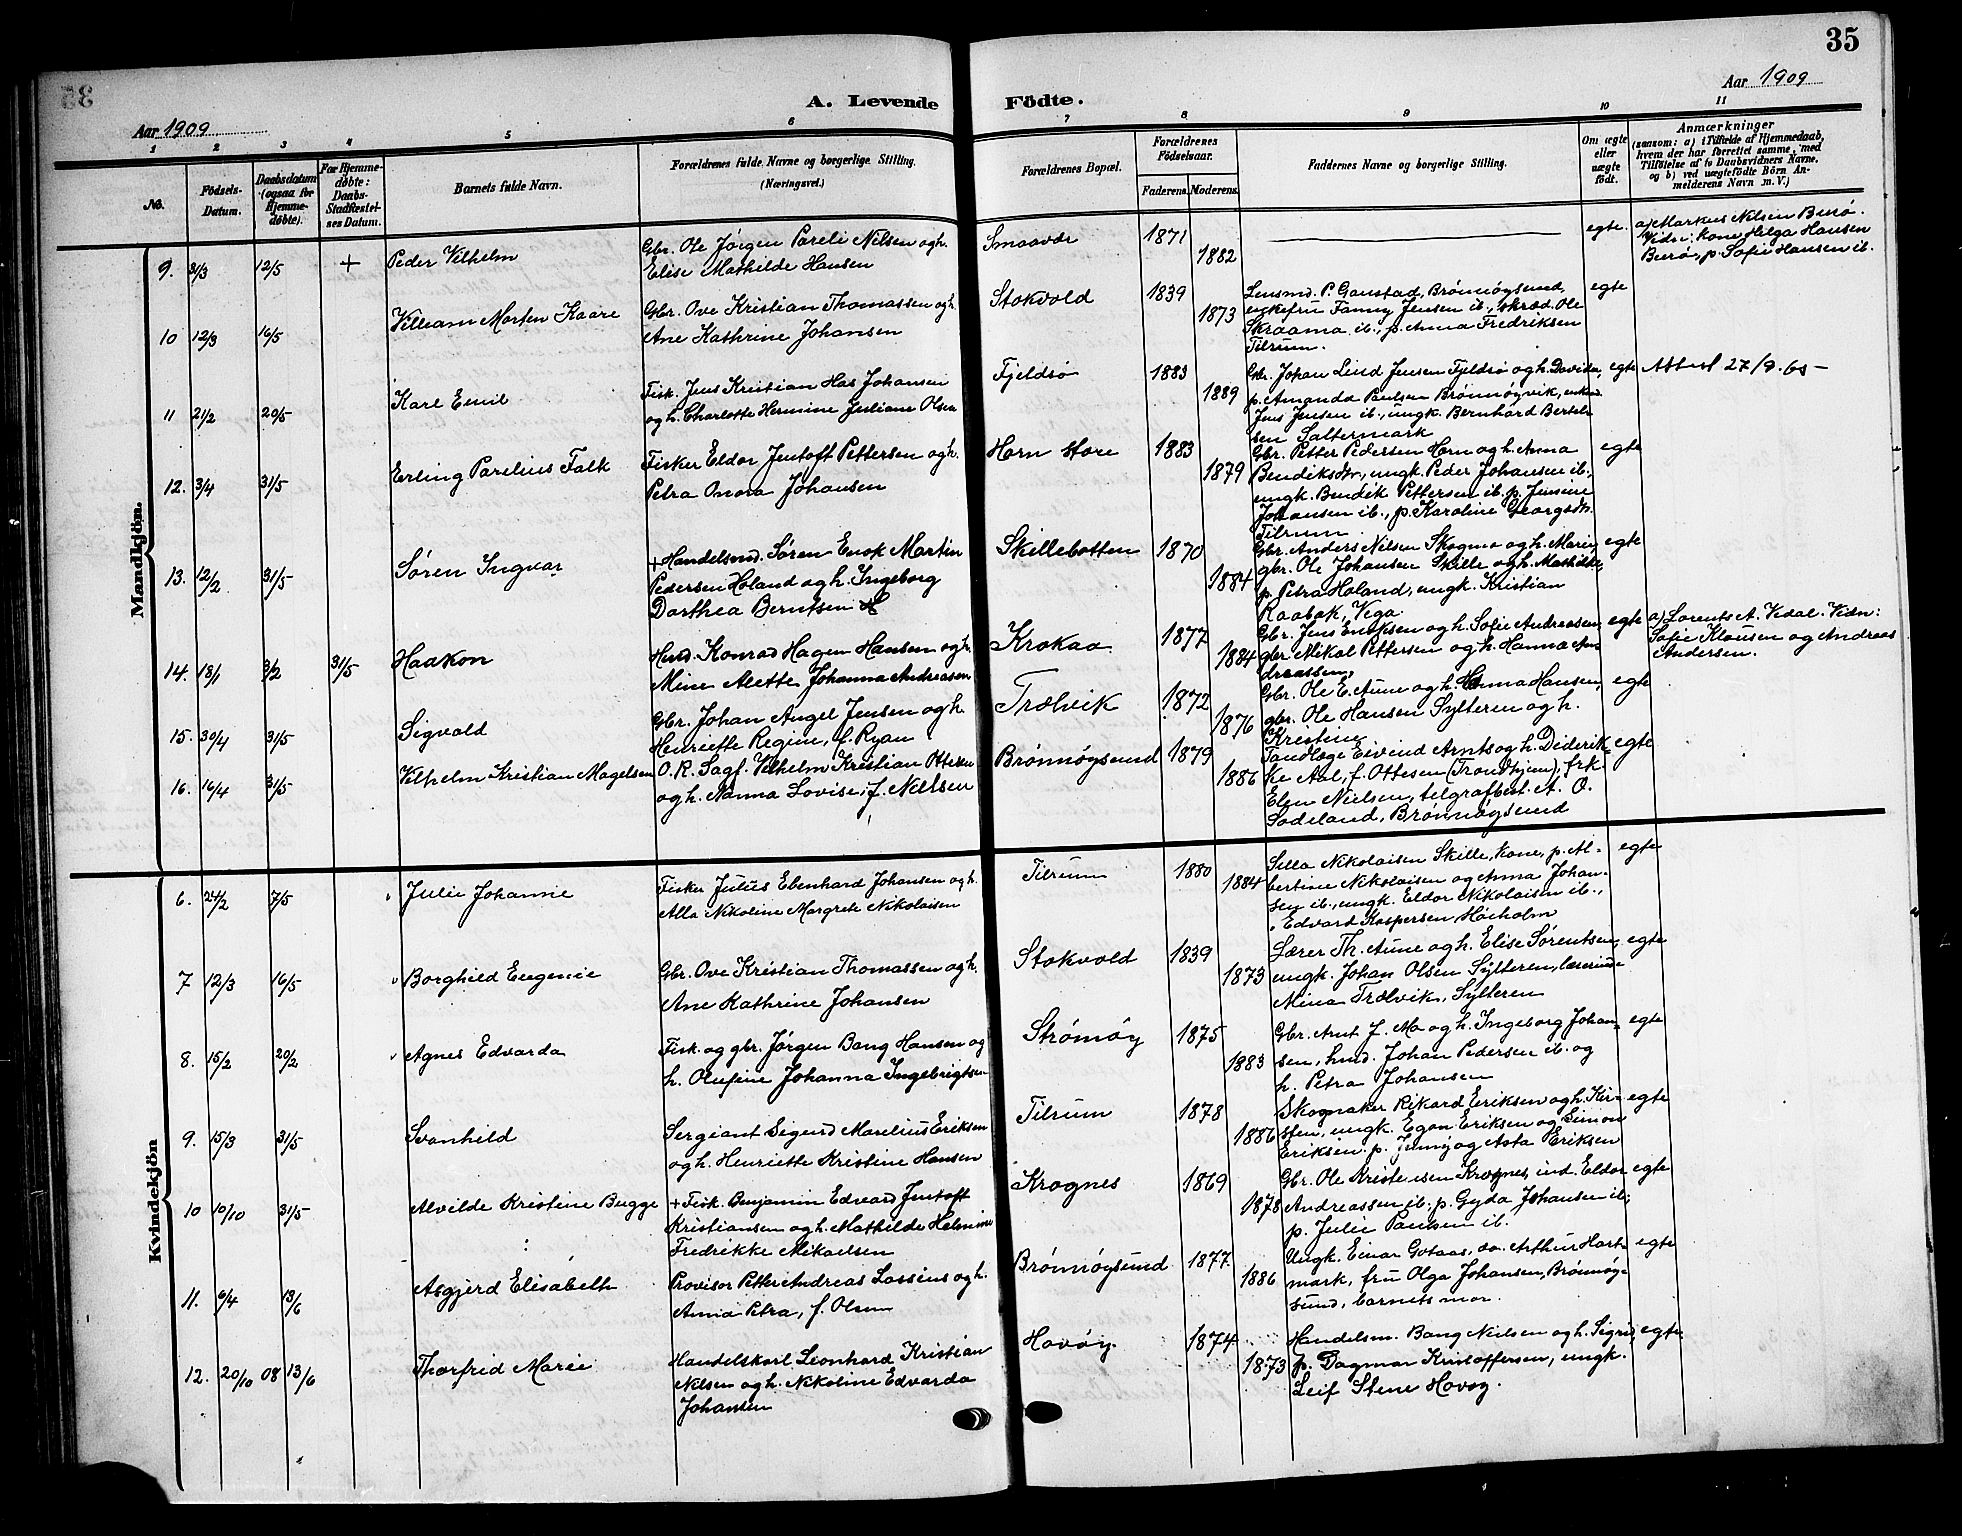 35
A. Levende Födte.
Aar 1909
Aar 1909
1 2 3 4 5 6 7 8 9 10 11
No.
Födsels-Datum.
Daabsdatum (ogsaa for Hjemmedøbte).
For Hjemmedøbte: Daabs-Stadfæstelses Datum.
Barnets fulde Navn.
Forældrenes fulde Navne og borgerlige Stilling. (Næringsvei.)
Forældrenes Bopæl.
Forældrenes Födselsaar.
Faderens. Moderens.
Faddernes Navne og borgerlige Stilling.
Om ægte eller uægte født.
Anmærkninger
(saasom: a) i Tilfælde af Hjemmedaab, hvem der har forrettet samme, med Tilføielse af to Daabsvidners Navne, og b) ved uægtefödte Börn Anmelderens Navn m. V.)
Mandkjön.
9. 3/3 12/5 + Peder Vilhelm
Gbr. Ole Jørgen Pareli Nilsen og h.
Elise Mathilde Hansen
Smaavær 1871 1882 egte
a) Markus Nilsen Burø.
Vidn: Kone Helga Hansen
Burø, p. Sofie Hansen ib.
10 12/3 16/5 Villiam Morten Kaare
Gbr. Ove Kristian Thomassen og h.
Ane Kathrine Johansen
Stokvold 1839 1873
Lensmd. P. Gaustad, Brønnøysund,
enkefru Fanny Jensen ib., skræd. Ole
Skraama ib., p. Anna Fredriksen
Tilrum.
egte
11 21/2 20/5 Karl Emil
Fisk. Jens Kristian Has Johansen
og h. Charlotte Hermine Juliane Olsen
Fjeldsø 1883 1889
Gbr. Johan Lind Jensen Fjeldsø og h. Davida,
p. Amanda Paulsen Brønnøyvik, enkmd.
Jens Jensen ib., ungk. Bernhard Bertelsen
Saltermark
egte Attest 27/9. 65 -
12. 3/4 31/5 Erling Parelius Falk
Fisker Eldor Jentoft Pettersen og h.
Petra Onora Johansen
Horn store 1883 1879
Gbr. Petter Pedersen Horn og h. Anna
Bendiksdtr., ungk. Peder Johansen ib.,
ungk. Bendik Pettersen ib. p. Jensine
Johansen ib., p. Karoline Georgsdtr.
Tilrum
egte
13. 12/2 31/5 Søren Ingvar
+ Handelsmd. Søren Enok Martin
Pedersen Holand og h. Ingeborg
Dorthea Berntsen
Skillebotten 1870 1884
Gbr. Anders Nilsen Skogmo og h. Marie,
gbr. Ole Johansen Skille og h. Mathilde,
p. Petra Holand, ungk. Kristian
Raabak, Vega.
egte
14. 18/1 3/2 31/5 Haakon
Hmd. Konrad Hagen Hansen og h.
Mine Alette Johanna Andreasen
Krokaa 1877 1884
Gbr. Jens Enoksen og h. Sofie Andreasen,
gbr. Mikal Pettersen og h. Hanna Andreassen,
egte
a) Lorents A. Vidal. Vidn:
Sofie Klausen og Andreas
Andersen.
15. 30/4 31/5 Sigvald
Gbr. Johan Angel Jensen og h.
Henriette Regine, f. Ryan
Trælvik 1872 1876
Gbr. Ole E. Aune og h. Anna Hansen,
gbr. Ole Hansen Sylteren og h.
Kristine
egte
16. 16/4 31/5 Vilhelm Kristian Magelsen
O. R. Sagf. Vilhelm Kristian Ottesen
og h. Nanna Lovise, f. Nielsen
Brønnøysund 1879 1886
Tandlæge Eivind Arnts og h. Diderikke
Aal, f. Ottesen (Trondhjem), frk.
Elen Nielsen, telgrafbest. A. O.
Sodeland, Brønnøysund
egte
Kvindekjön
6. 24/2 7/5 Julie Johanne
Fisker Julius Ebenhard Johansen og h.
Alla Nikoline Margrete Nikolaisen
Tilrum 1880 1884
Silla Nikolaisen Skille, kone, p. Albertine
Nikolaisen og Anna Johansen
ib., ungk. Eldor Nikolaisen ib.,
Edvard Kaspersen, Høiholm
egte
7 12/3 16/5 Borghild Eugenie
Gbr. Ove Kristian Thomassen og h.
Ane Kathrine Johansen
Stokvold 1839 1873
Lærer Th. Aune og h. Elise Sørentsen,
ungk. Johan Olsen Sylteren, lærerinde
Mina Trælvik, Sylteren
egte
8. 15/2 20/2 Agnes Edvarda
Fisk. og gbr. Jørgen Bang Hansen og
h. Olufine Johanna Ingebrigtsen
Strømøy 1875 1883
Gbr. Arnt J. Mo og h. Ingeborg Johansen,
hmd. Johan Pedersen ib. og
h. Petra Johansen
egte
9. 15/3 31/5 Svanhild
Sergiant Sigurd Marelius Eriksen
og h. Henriette Kristine Hansen
Tilrum 1878 1886
Skogmaker Rikard Eriksen og h. Kirsten,
ungk. Egon Eriksen og Simon
Eriksen. p. Jenny og Asta Eriksen
egte
10 10/10 31/5 Alvilde Kristine Bugge
+ Fisk. Benjamin Edvard Jentoft
Kristiansen og h. Mathilde Helmine
Fredrikke Mikaelsen
Krognes 1869 1878
Gbr. Ole Kristensen Krognes, ind. Eldor
Andreassen ib. p. Gyda Johansen ib,
p. Julie Paulsen ib.
egte
11. 6/4 13/6 Asgjerd Elisabeth
Provisor Petter Andreas Lassius og h.
Anna Petra, f. Olsen
Brønnøysund 1877 1886
Ungk. Einar Gotaas, do. Arthur Hartmark,
fru Olga Johansen, Brønnøysund,
barnets mor.
egte
12. 20/10 08 13/6 Thorfrid Marie
Handelskarl Leonhard Kristian
Nilsen og h. Nikoline Edvarda
Johansen
Havøy 1874 1873
Handelsm. Bang Nielsen og h. Sigrid,
p. Dagmar Kristoffersen, ungk.
Leif Stene Havøy.
egte